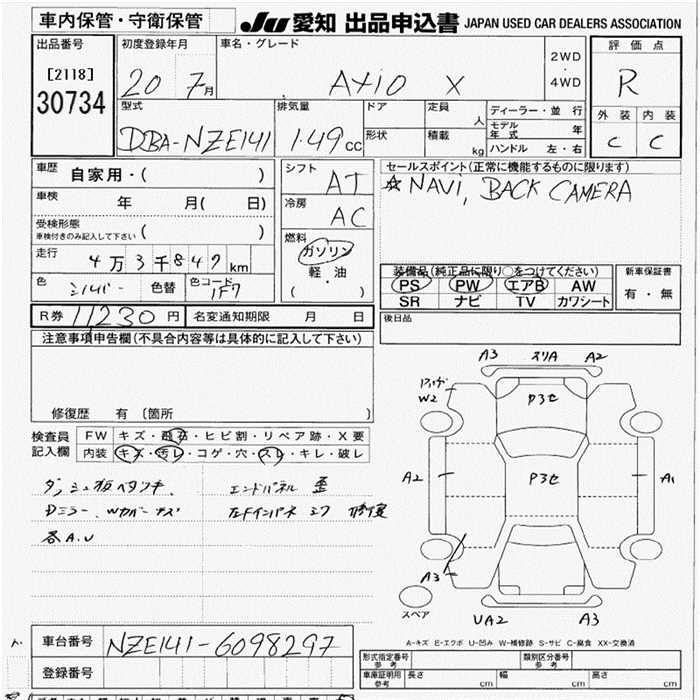 車内保管・守衛保管
JU 愛知 出品申込書 JAPAN USED CAR DEALERS ASSOCIATION
出品番号
[2118]
30734
初度登録年月
20 7月
車名・グレード
AXIO X
2WD
・
4WD
評価点
R
外装 内装
C C
型式
DBA-NZE141
排気量
1.49cc
ドア
形状
定員 人
積載 kg
ディーラー・並行
モデル年式 年
ハンドル 左・右
車歴
自家用・( )
車検
年 月( 日)
受検形態
車検付きのみ記入して下さい ( )
走行
4万3千847km
色 シルバー 色替 色コード 1F7
シフト
AT
冷房
AC
燃料
ガソリン
軽・油
( )
セールスポイント(正常に機能するものに限ります)
☆NAVI, BACK CAMERA
装備品(純正品に限り○をつけてください)
PS PW エアB AW
SR ナビ TV カワシート
新車保証書
有・無
R券 11,230円 名変通知期限 月 日
後日品
注意事項申告欄(不具合内容等は具体的に記入して下さい)
修復歴 有 [箇所 ]
検査員記入欄
FW キズ・飛石・ヒビ割・リペア跡・X要
内装 キズ・汚レ・コゲ・穴・スレ・キレ・破レ
エンドパネル 歪
Dミラー
各A.U
A3 スリA A2
W2
P3セ
A2 P3セ A1
A3
スペア
UA2 A3
A-キズ E-エクボ U-凹み W-補修跡 S-サビ C-腐食 XX-交換済
車台番号 NZE141-6098297
登録番号
型式指定番号 参考
類別区分番号 参考
車庫証明用 参考 長さ cm 幅 cm 高さ cm